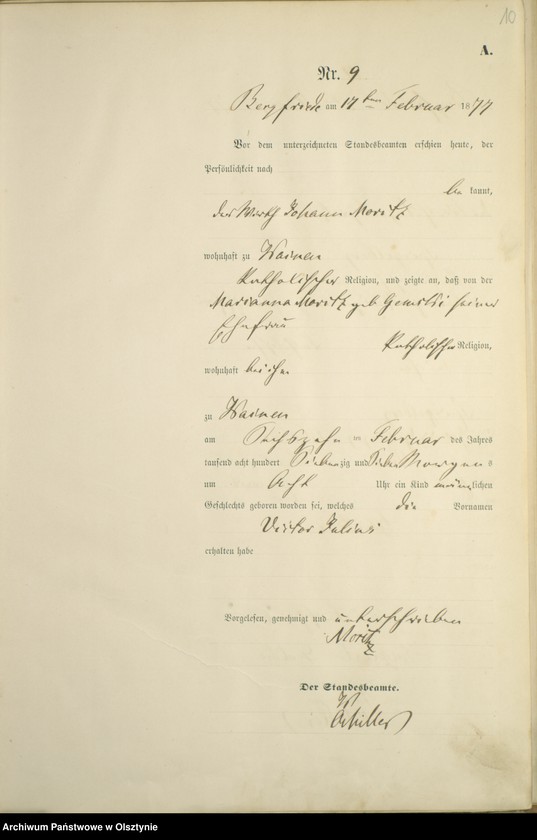 10
A.
Nr. 9
Bergfriede am 17ten Februar 1877
Vor dem unterzeichneten Standesbeamten erschien heute, der
Persönlichkeit nach
be kannt,
der Wirth Johann Moritz
wohnhaft zu
katholischer Religion, und zeigte an, daß von der
Marianna Moritz geb seiner
Ehefrau
katholischer Religion,
wohnhaft bei ihm
zu
am Sechszehn ten Februar des Jahres
tausend acht hundert Siebenzig und Sieben Morgens
um Acht Uhr ein Kind männlichen
Geschlechts geboren worden sei, welches die Vornamen
Victor Julius
erhalten habe
Vorgelesen, genehmigt und unterschrieben
Moritz
Der Standesbeamte.
Archiwum Państwowe w Olsztynie